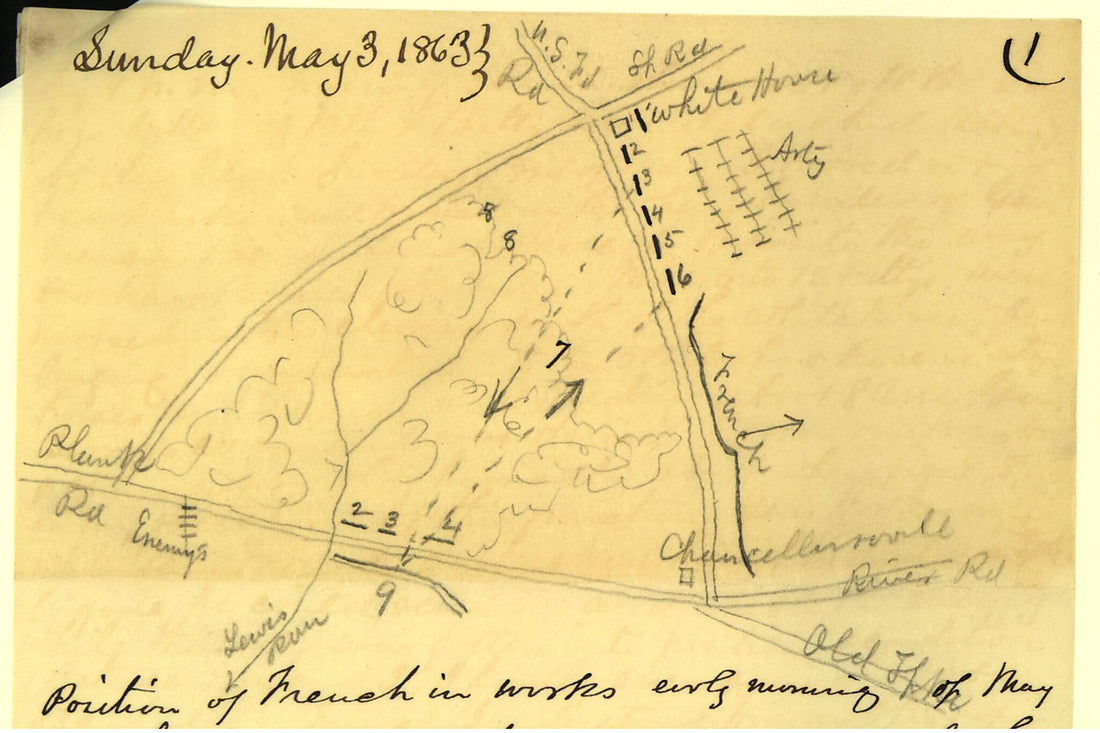 Sunday. May 3, 1863
1
U.S. Fd
Rd
Rd
White House
1
2
3
4
5
6
Arty
8
8
7
French
Plank
Rd
Enemys
2 3 4
9
Chancellorsville
River Rd
Lewis
Run
Old
Position of French in works early morning of May